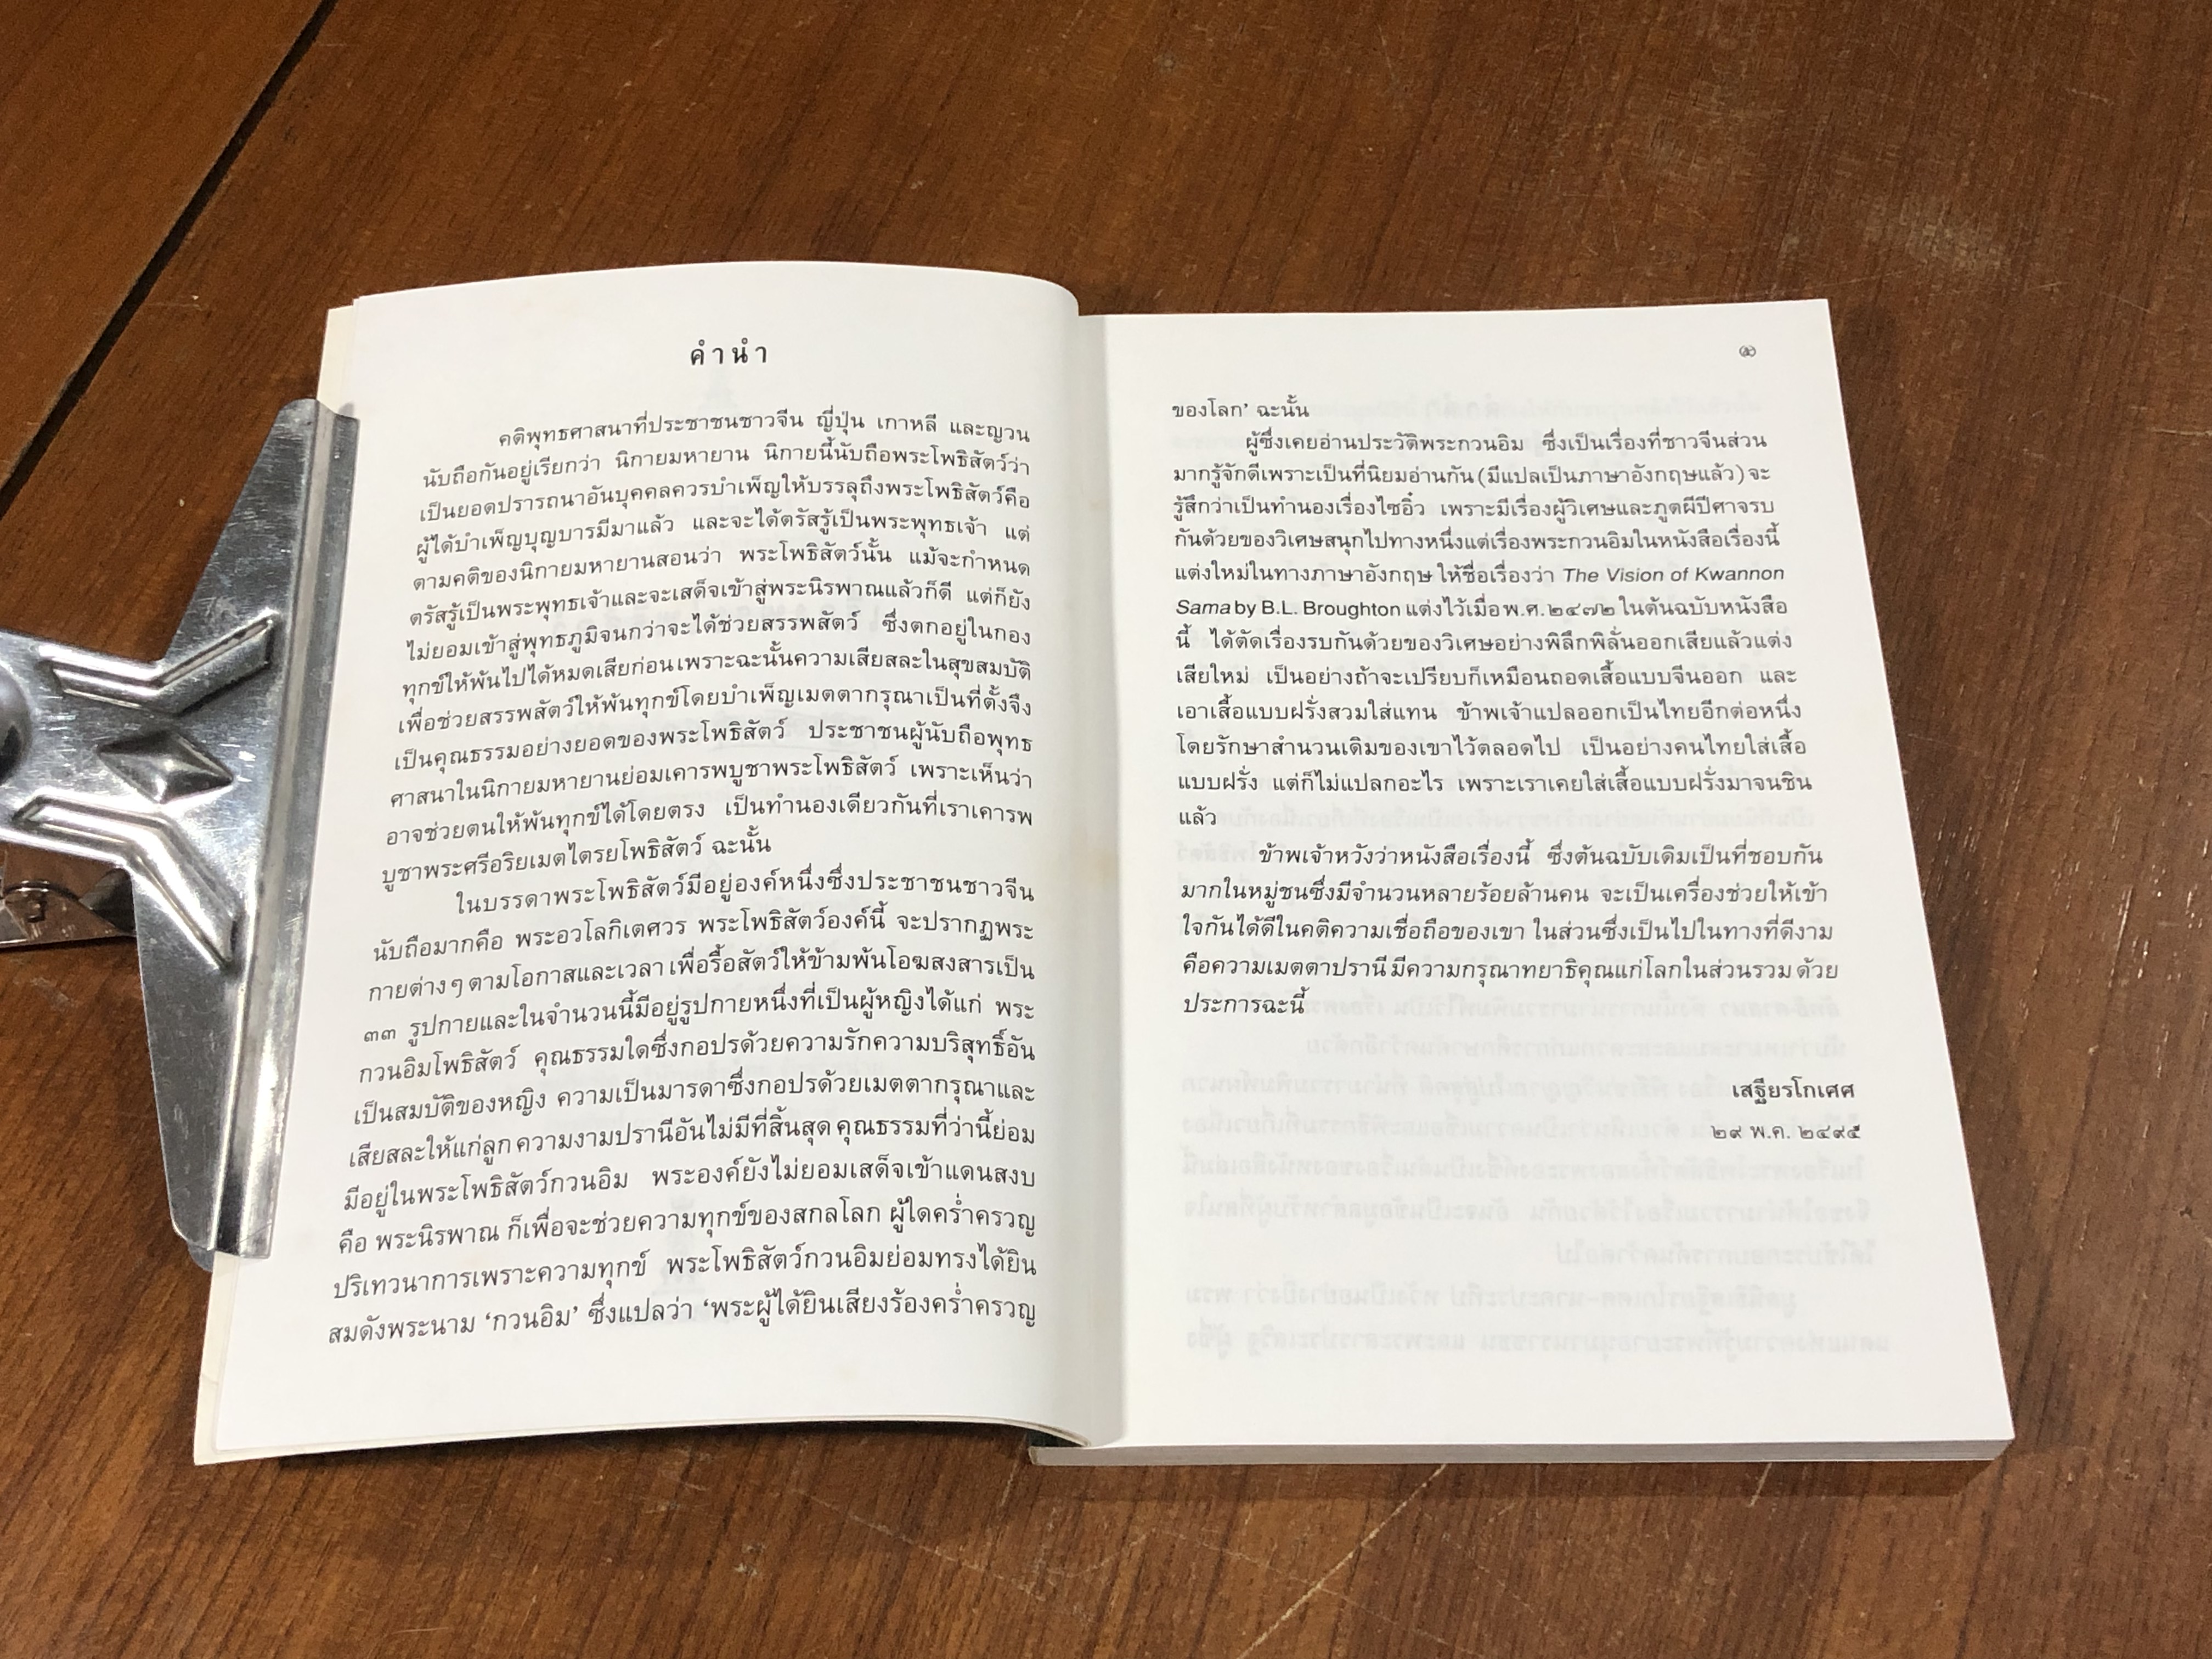 คำนำ
คติพุทธศาสนาที่ประชาชนชาวจีน ญี่ปุ่น เกาหลี และญวน
นับถือกันอยู่เรียกว่า นิกายมหายาน นิกายนี้นับถือพระโพธิสัตว์ว่า
เป็นยอดปรารถนาอันบุคคลควรบำเพ็ญให้บรรลุถึงพระโพธิสัตว์คือ
ผู้ได้บำเพ็ญบุญบารมีมาแล้ว และจะได้ตรัสรู้เป็นพระพุทธเจ้า แต่
ตามคติของนิกายมหายานสอนว่า พระโพธิสัตว์นั้น แม้จะกำหนด
ตรัสรู้เป็นพระพุทธเจ้าและจะเสด็จเข้าสู่พระนิรพาณแล้วก็ดี แต่ก็ยัง
ไม่ยอมเข้าสู่พุทธภูมิจนกว่าจะได้ช่วยสรรพสัตว์ ซึ่งตกอยู่ในกอง
ทุกข์ให้พ้นไปได้หมดเสียก่อน เพราะฉะนั้นความเสียสละในสุขสมบัติ
เพื่อช่วยสรรพสัตว์ให้พ้นทุกข์โดยบำเพ็ญเมตตากรุณาเป็นที่ตั้งจึง
เป็นคุณธรรมอย่างยอดของพระโพธิสัตว์ ประชาชนผู้นับถือพุทธ
ศาสนาในนิกายมหายานย่อมเคารพบูชาพระโพธิสัตว์ เพราะเห็นว่า
อาจช่วยตนให้พ้นทุกข์ได้โดยตรง เป็นทำนองเดียวกันที่เราเคารพ
บูชาพระศรีอริยเมตไตรยโพธิสัตว์ ฉะนั้น
ในบรรดาพระโพธิสัตว์มีอยู่องค์หนึ่งซึ่งประชาชนชาวจีน
นับถือมากคือ พระอวโลกิเตศวร พระโพธิสัตว์องค์นี้ จะปรากฏพระ
กายต่างๆ ตามโอกาสและเวลา เพื่อรื้อสัตว์ให้ข้ามพ้นโอฆสงสารเป็น
๓๓ รูปกายและในจำนวนนี้มีอยู่รูปกายหนึ่งที่เป็นผู้หญิงได้แก่ พระ
กวนอิมโพธิสัตว์ คุณธรรมใดซึ่งกอปรด้วยความรักความบริสุทธิ์อัน
เป็นสมบัติของหญิง ความเป็นมารดาซึ่งกอปรด้วยเมตตากรุณาและ
เสียสละให้แก่ลูก ความงามปรานีอันไม่มีที่สิ้นสุด คุณธรรมที่ว่านี้ย่อม
มีอยู่ในพระโพธิสัตว์กวนอิม พระองค์ยังไม่ยอมเสด็จเข้าแดนสงบ
คือ พระนิรพาณ ก็เพื่อจะช่วยความทุกข์ของสกลโลก ผู้ใดคร่ำครวญ
ปริเทวนาการเพราะความทุกข์ พระโพธิสัตว์กวนอิมย่อมทรงได้ยิน
สมดังพระนาม ‘กวนอิม’ ซึ่งแปลว่า ‘พระผู้ได้ยินเสียงร้องคร่ำครวญ
ของโลก’ ฉะนั้น
ผู้ซึ่งเคยอ่านประวัติพระกวนอิม ซึ่งเป็นเรื่องที่ชาวจีนส่วน
มากรู้จักดีเพราะเป็นที่นิยมอ่านกัน (มีแปลเป็นภาษาอังกฤษแล้ว) จะ
รู้สึกว่าเป็นทำนองเรื่องไซอิ๋ว เพราะมีเรื่องผู้วิเศษและภูตผีปีศาจรบ
กันด้วยของวิเศษสนุกไปทางหนึ่งแต่เรื่องพระกวนอิมในหนังสือเรื่องนี้
แต่งใหม่ในทางภาษาอังกฤษ ให้ชื่อเรื่องว่า The Vision of Kwannon
Sama by B.L. Broughton แต่งไว้เมื่อ พ.ศ. ๒๔๗๒ ในต้นฉบับหนังสือ
นี้ ได้ตัดเรื่องรบกันด้วยของวิเศษอย่างพิลึกพิลั่นออกเสียแล้วแต่ง
เสียใหม่ เป็นอย่างถ้าจะเปรียบก็เหมือนถอดเสื้อแบบจีนออก และ
เอาเสื้อแบบฝรั่งสวมใส่แทน ข้าพเจ้าแปลออกเป็นไทยอีกต่อหนึ่ง
โดยรักษาสำนวนเดิมของเขาไว้ตลอดไป เป็นอย่างคนไทยใส่เสื้อ
แบบฝรั่ง แต่ก็ไม่แปลกอะไร เพราะเราเคยใส่เสื้อแบบฝรั่งมาจนชิน
แล้ว
ข้าพเจ้าหวังว่าหนังสือเรื่องนี้ ซึ่งต้นฉบับเดิมเป็นที่ชอบกัน
มากในหมู่ชนซึ่งมีจำนวนหลายร้อยล้านคน จะเป็นเครื่องช่วยให้เข้า
ใจกันได้ดีในคติความเชื่อถือของเขา ในส่วนซึ่งเป็นไปในทางที่ดีงาม
คือความเมตตาปรานี มีความกรุณาทยาธิคุณแก่โลกในส่วนรวม ด้วย
ประการฉะนี้
เสฐียรโกเศศ
๒๙ พ.ค. ๒๔๙๕